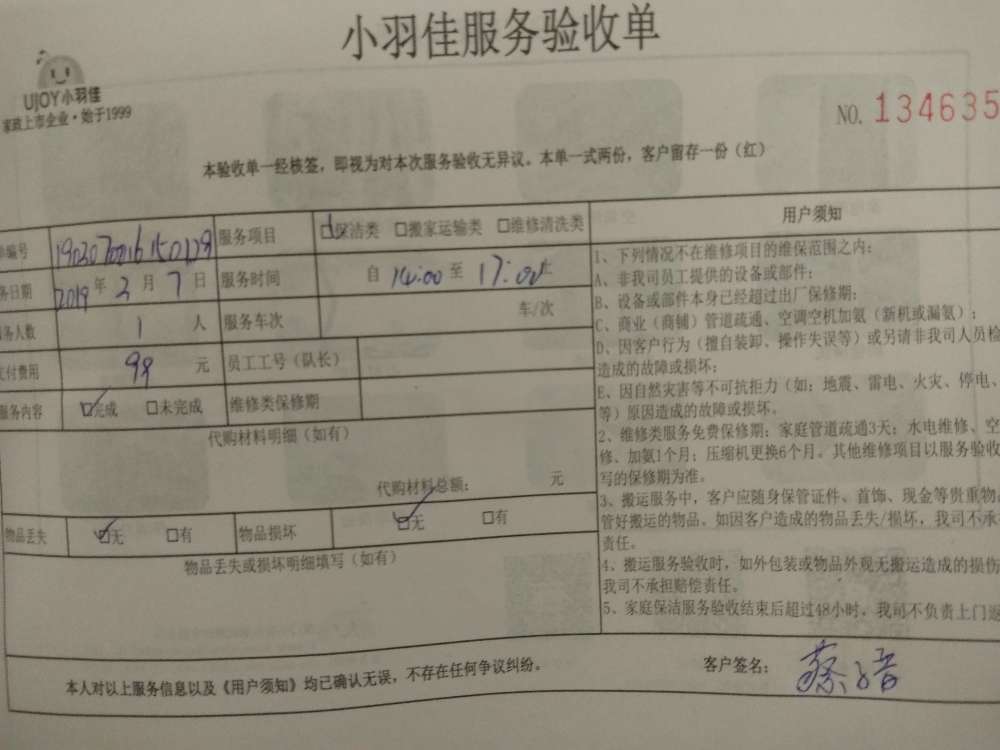 小羽佳服务验收单
UJOY小羽佳
家政上市企业·始于1999
NO. 134635
本验收单一经核签，即视为对本次服务验收无异议。本单一式两份，客户留存一份（红）
编号 服务项目 保洁类 □搬家运输类 □维修清洗类
务日期 2019 年 3 月 7 日 服务时间 自 14:00 至 17:00
务人数 1 人 服务车次 车/次
付费用 98 元 员工工号（队长）
服务内容 ☑完成 □未完成 维修类保修期
代购材料明细（如有）
代购材料总额： 元
物品丢失 ☑无 □有 物品损坏 ☑无 □有
物品丢失或损坏明细填写（如有）
用户须知
1、下列情况不在维修项目的维保范围之内：
A、非我司员工提供的设备或部件；
B、设备或部件本身已经超过出厂保修期；
C、商业（商铺）管道疏通、空调空机加氨（新机或漏氨）；
D、因客户行为（擅自装卸、操作失误等）或另请非我司人员检
造成的故障或损坏；
E、因自然灾害等不可抗拒力（如：地震、雷电、火灾、停电、
等）原因造成的故障或损坏。
2、维修类服务免费保修期：家庭管道疏通3天；水电维修、空
修、加氨1个月；压缩机更换6个月。其他维修项目以服务验收
写的保修期为准。
3、搬运服务中，客户应随身保管证件、首饰、现金等贵重物
管好搬运的物品。如因客户造成的物品丢失/损坏，我司不承
责任。
4、搬运服务验收时，如外包装或物品外观无搬运造成的损伤
我司不承担赔偿责任。
5、家庭保洁服务验收结束后超过48小时，我司不负责上门返
本人对以上服务信息以及《用户须知》均已确认无误，不存在任何争议纠纷。 客户签名：